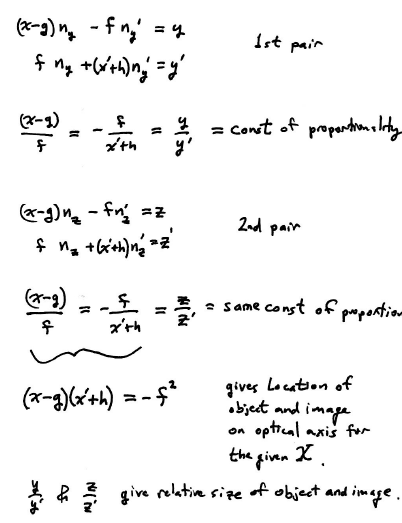 (x-g) n_y - f n_y' = y
1st pair
f n_y + (x'+h) n_y' = y'
(x-g)/f = - f/(x'+h) = y/y' = const of proportionality
(x-g) n_z - f n_z' = z
2nd pair
f n_z + (x'+h) n_z' = z'
(x-g)/f = - f/(x'+h) = z/z' = same const of proportion
(x-g)(x'+h) = -f²
gives Location of
object and image
on optical axis for
the given X.
y/y' & z/z' give relative size of object and image.